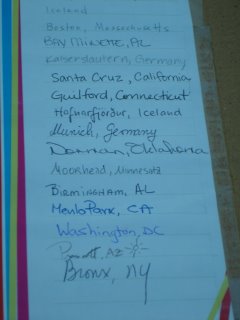 Iceland
Boston, Massachusetts
BAY MINETTE, AL
Kaiserslautern, Germany
Santa Cruz, California
Guilford, Connecticut
Hafnarfjordur, Iceland
Munich, Germany
Norman, Oklahoma
Moorhead, Minnesota
BIRMINGHAM, AL
Menlo Park, CA
Washington, DC
AZ
Bronx, NY